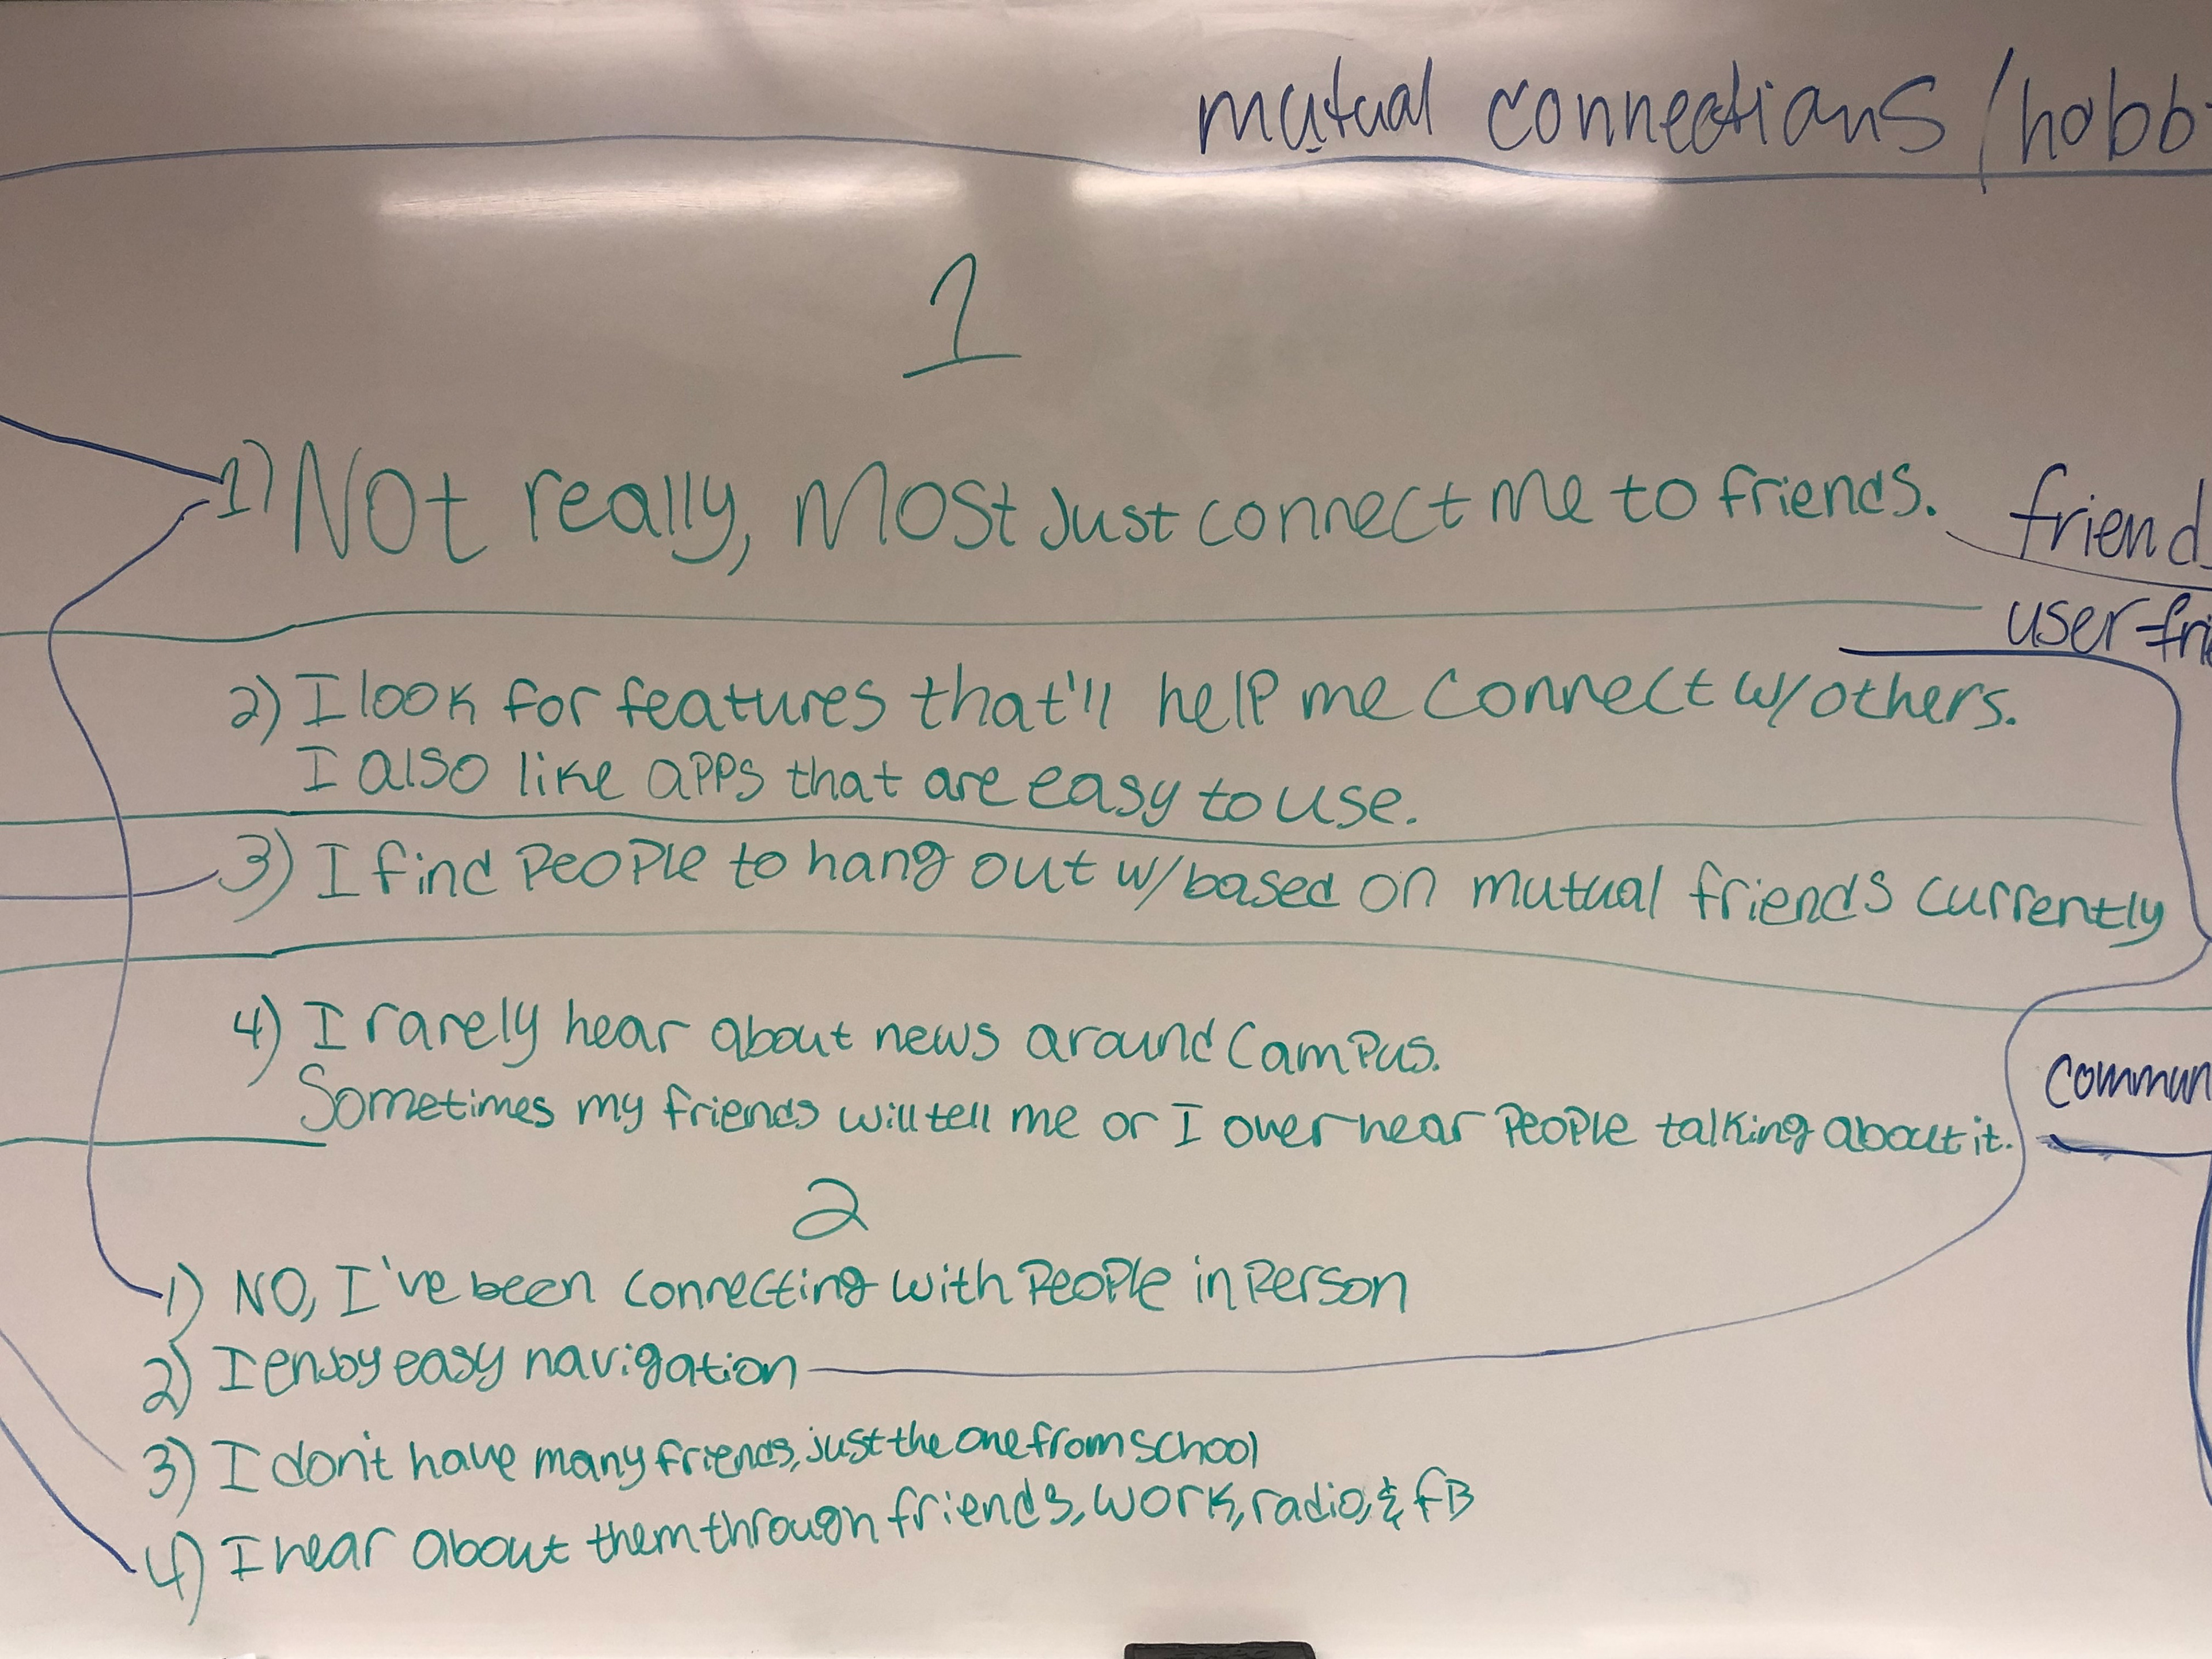 mutual connections / hobb
1
1) Not really, Most Just connect me to friends.
friend
user-fri
2) I look for features that'll help me connect w/ others.
I also like apps that are easy to use.
3) I find people to hang out w/ based on mutual friends currently
4) I rarely hear about news around campus.
commun
Sometimes my friends will tell me or I over hear people talking about it.
2
1) NO, I've been connecting with people in person
2) I enjoy easy navigation
3) I don't have many friends, just the one from school
4) I hear about them through friends, work, radio, & FB